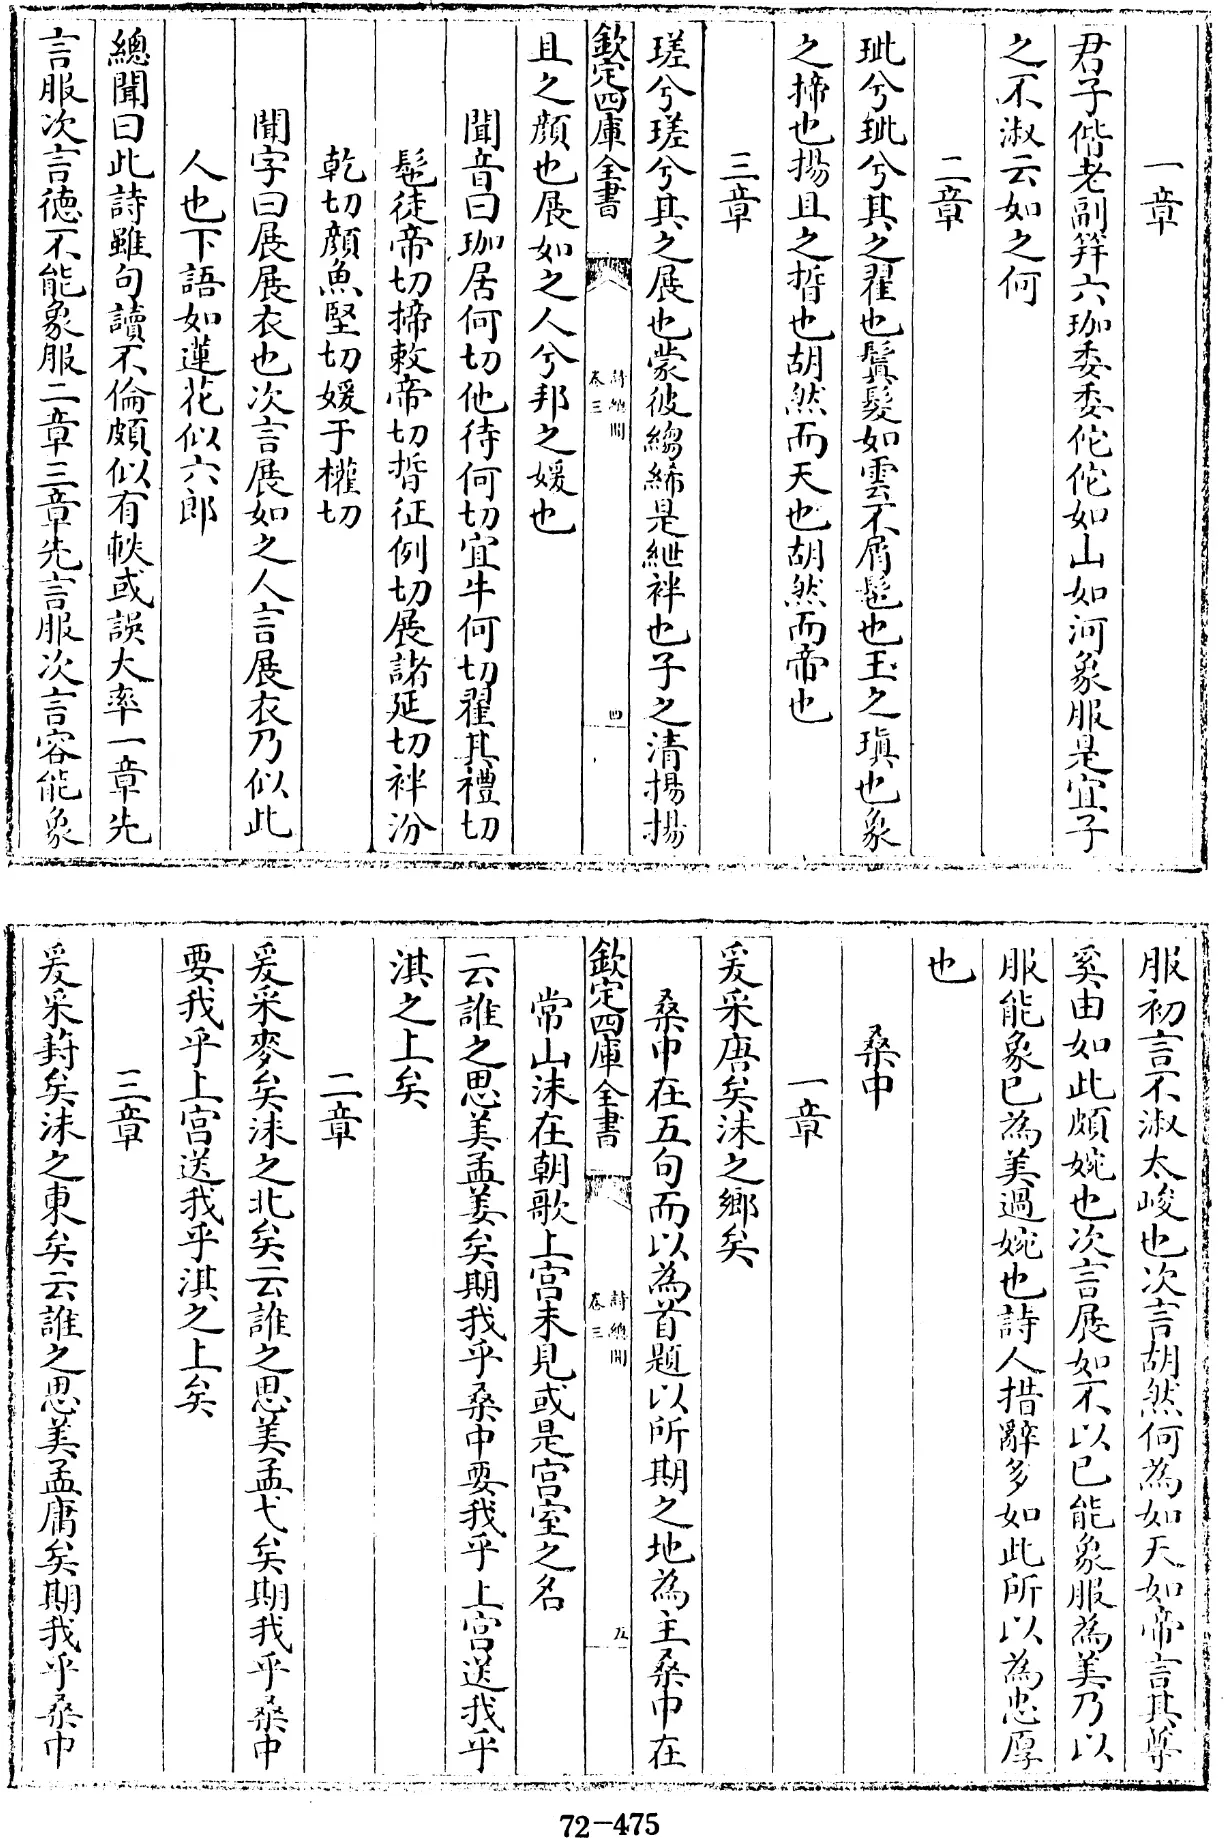 一章
君子偕老副笄六珈委委佗佗如山如河象服是宜子
之不淑云如之何
二章
玼兮玼兮其之翟也鬒髮如雲不屑髢也玉之瑱也象
之揥也揚且之晳也胡然而天也胡然而帝也
三章
瑳兮瑳兮其之展也蒙彼縐絺是紲袢也子之清揚揚
欽定四庫全書 詩總聞 卷三 四
且之顔也展如之人兮邦之媛也
聞音曰珈居何切他待何切宜牛何切翟其禮切
髢徒帝切揥敕帝切晳征例切展諸延切袢汾
乾切顔魚堅切媛于權切
聞字曰展展衣也次言展如之人言展衣乃似此
人也下語如蓮花似六郎
總聞曰此詩雖句讀不倫頗似有軼或誤大率一章先
言服次言德不能象服二章三章先言服次言容能象
服初言不淑太峻也次言胡然何為如天如帝言其尊
奚由如此頗婉也次言展如不以已能象服為美乃以
服能象已為美過婉也詩人措辭多如此所以為忠厚
也
桑中
一章
爰采唐矣沬之鄉矣
桑中在五句而以為首題以所期之地為主桑中在
欽定四庫全書 詩總聞 卷三 五
常山沬在朝歌上宮未見或是宮室之名
云誰之思美孟姜矣期我乎桑中要我乎上宮送我乎
淇之上矣
二章
爰采麥矣沬之北矣云誰之思美孟弋矣期我乎桑中
要我乎上宮送我乎淇之上矣
三章
爰采葑矣沬之東矣云誰之思美孟庸矣期我乎桑中
72-475